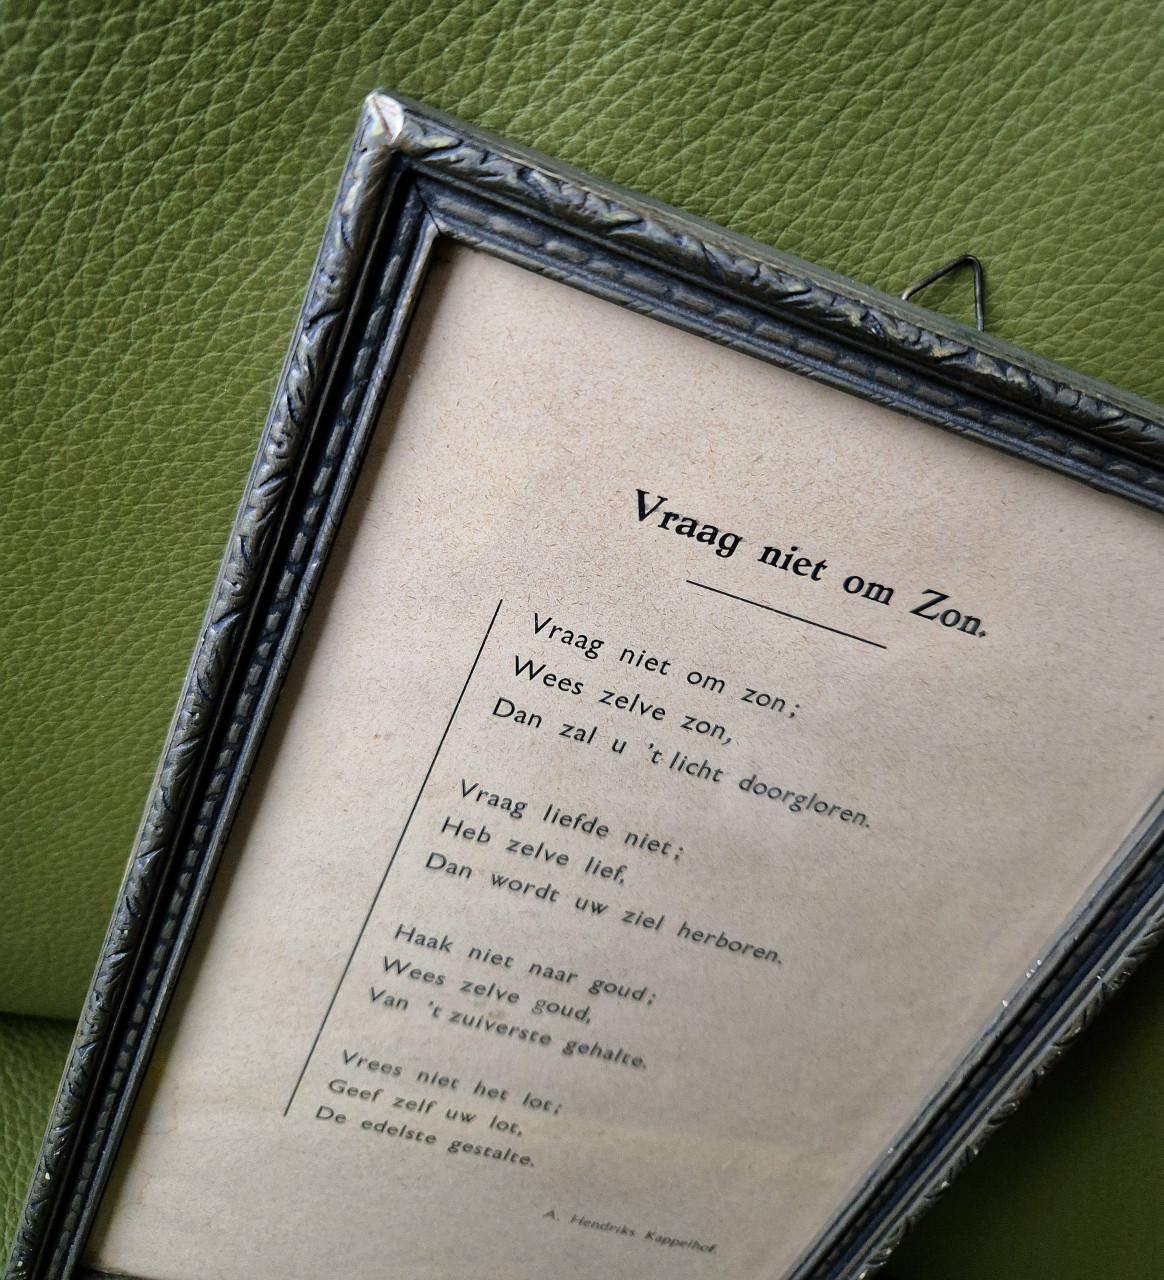 Vraag niet om Zon.
Vraag niet om zon;
Wees zelve zon,
Dan zal u 't licht doorgloren.
Vraag liefde niet;
Heb zelve lief,
Dan wordt uw ziel herboren.
Haak niet naar goud;
Wees zelve goud,
Van 't zuiverste gehalte.
Vrees niet het lot;
Geef zelf uw lot,
De edelste gestalte.
A. Hendriks Kappelhof.